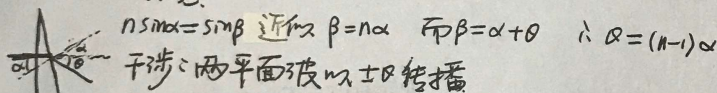 n sinα = sinβ 近似 β = nα 而β = α + θ ∴ θ = (n-1)α
α α θ
干涉：两平面波以 ±θ 传播